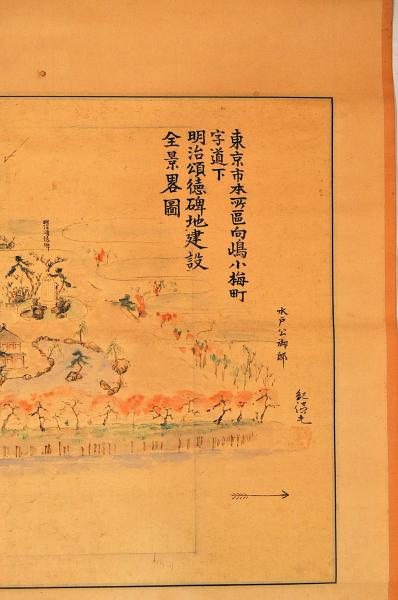 東京市本所區向嶋小梅町
字道下
明治頌徳碑地建設
全景畧圖
水戸公御邸
明治頌徳碑